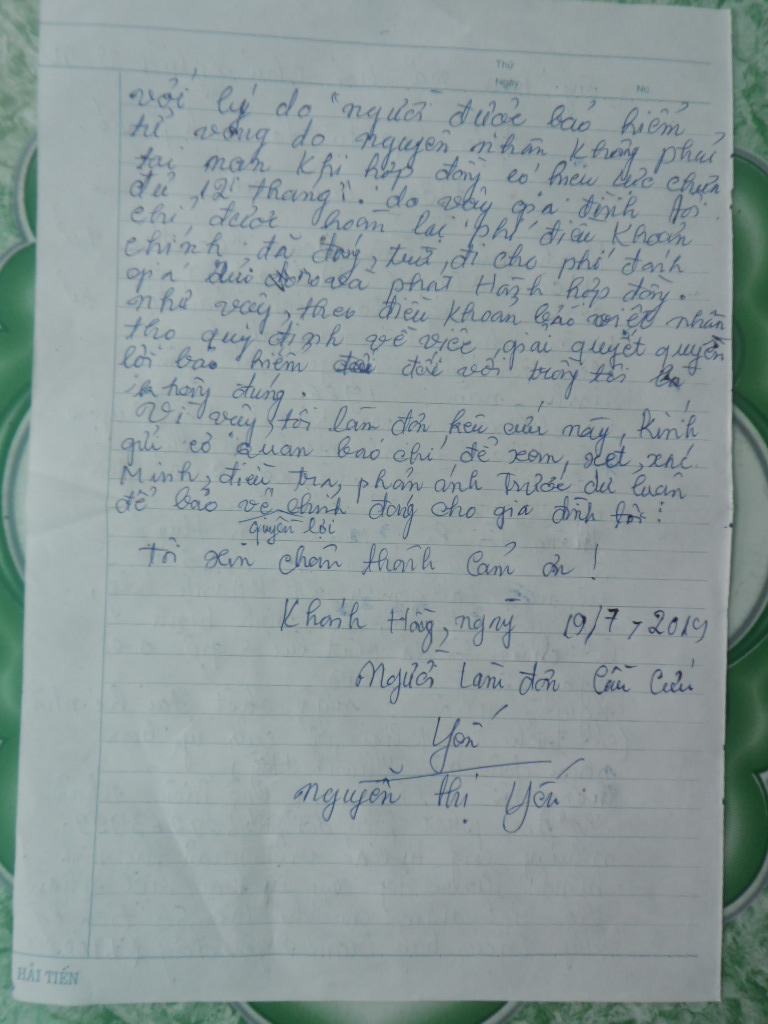 Thứ
Ngày Nº
với lý do "người được bảo hiểm
tử vong do nguyên nhân không phải
tai nạn khi hợp đồng có hiệu lực chưa
đủ 12 tháng". do vậy gia đình tôi
chỉ được hoàn lại phí điều khoản
chính đã đóng, trừ đi cho phí đánh
giá và phát Hành hợp đồng.
như vậy, theo điều khoản bảo việt nhân
thọ quy định về việc giải quyết quyền
lời bảo hiểm đối với trồng tôi
không đúng.
Vì vậy, tôi làm đơn kêu cứu này, kính
gửi cơ quan báo chí để xem, xét, xác
Minh, điều tra, phản ánh trước dư luận
để bảo vệ chính đáng cho gia đình tôi!
quyền lợi
Tôi xin chân thành cảm ơn!
Khánh Hồng, ngày 19/7-2019
Người làm đơn cầu cứu
Yến
Nguyễn Thị Yến
HẢI TIẾN